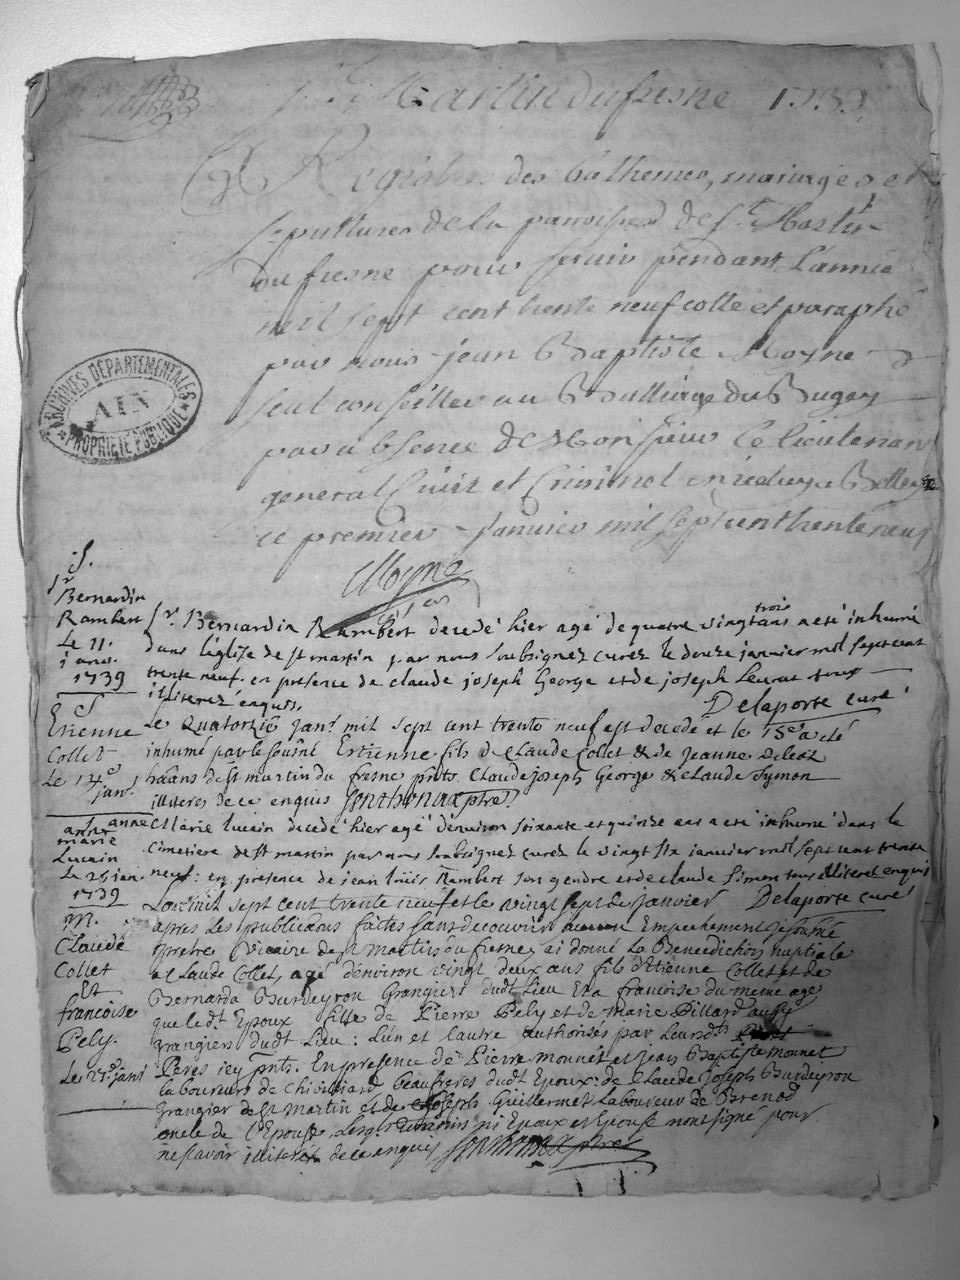 St Martin du fresne 1739
Registre des bathemes, mariages et
sepultures de la paroisse de St Martin
du fresne pour servir pendant l'année
mil sept cent trente neuf cotté et paraphé
par nous jean Baptiste Moyne
seul conseiller au Bailliage du Bugey
par absence de Monsieur le lieutenant
general Civil et Criminel en iceluy a Belley
ce premier Janvier mil sept cent trente neuf
Moyne
ARCHIVES DÉPARTEMENTALES
AIN
PROPRIÉTÉ PUBLIQUE
S.
Sr
Bernardin
Rambert
Le 11.
janv.
1739
Sr. Bernardin Rambert decedé hier agé de quatre vingt trois ans a eté inhumé
dans l'église de st martin par nous soubsignez curez le douze janvier mil sept cent
trente neuf. en presence de claude joseph George et de joseph tous
illiterez enquis.
Delaporte curé
S
Etienne
Collet
Le 14e
jan.
Le Quatorzie janr. mil sept cent trente neuf est decedé et le 15e a eté
inhumé par le sousné Estienne fils de Claude Collet & de Jeanne
habans de st martin du fresne pnts. Claude joseph George & claude Symon
illiteres de ce enquis Sonthonax ptre
S. anne
marie
Lucain
Le 26 jan.
1739
Marie lucain decedé hier agé d'environ soixante et quinze ans a eté inhumé dans le
Cimetiere de st martin par nous soubsignez curez le vingt six janvier mil sept cent trente
neuf: en presence de jean loüis Rambert son gendre et de claude Simon tous illiterez enquis
Delaporte curé
M.
Claude
Collet
Et
francoise
Pely.
Le 27e janr
L'an mil sept cent trente neuf et le vingt sept de janvier
apres les publications faittes sans decouvrir aucun Empechement je sousné
pretre Vicaire de st Martin du fresne ai donné la Benediction nuptiale
a Claude Collet, agé d'environ vingt deux ans fils d'Etienne Collet et de
Bernarda Burdeyron Grangiers dudt Lieu Et a francoise du meme age
que le dt. Epoux fille de Pierre Pely et de Marie Billard aussy
grangiers dudt Lieu: L'un et l'autre authorisés par Leursds.
Peres icy pnts. En presence de Pierre monnet et jean Baptiste monnet
laboureurs de Beaufreres dudt Epoux: de Claude Joseph Burdeyron
Grangier de st Martin et de Joseph Guillermet Laboureur de Brenod
oncle de l'Epouse ni Epoux ni Epouse n'ont signé pour
ne scavoir illiteres de ce enquis Sonthonax ptre